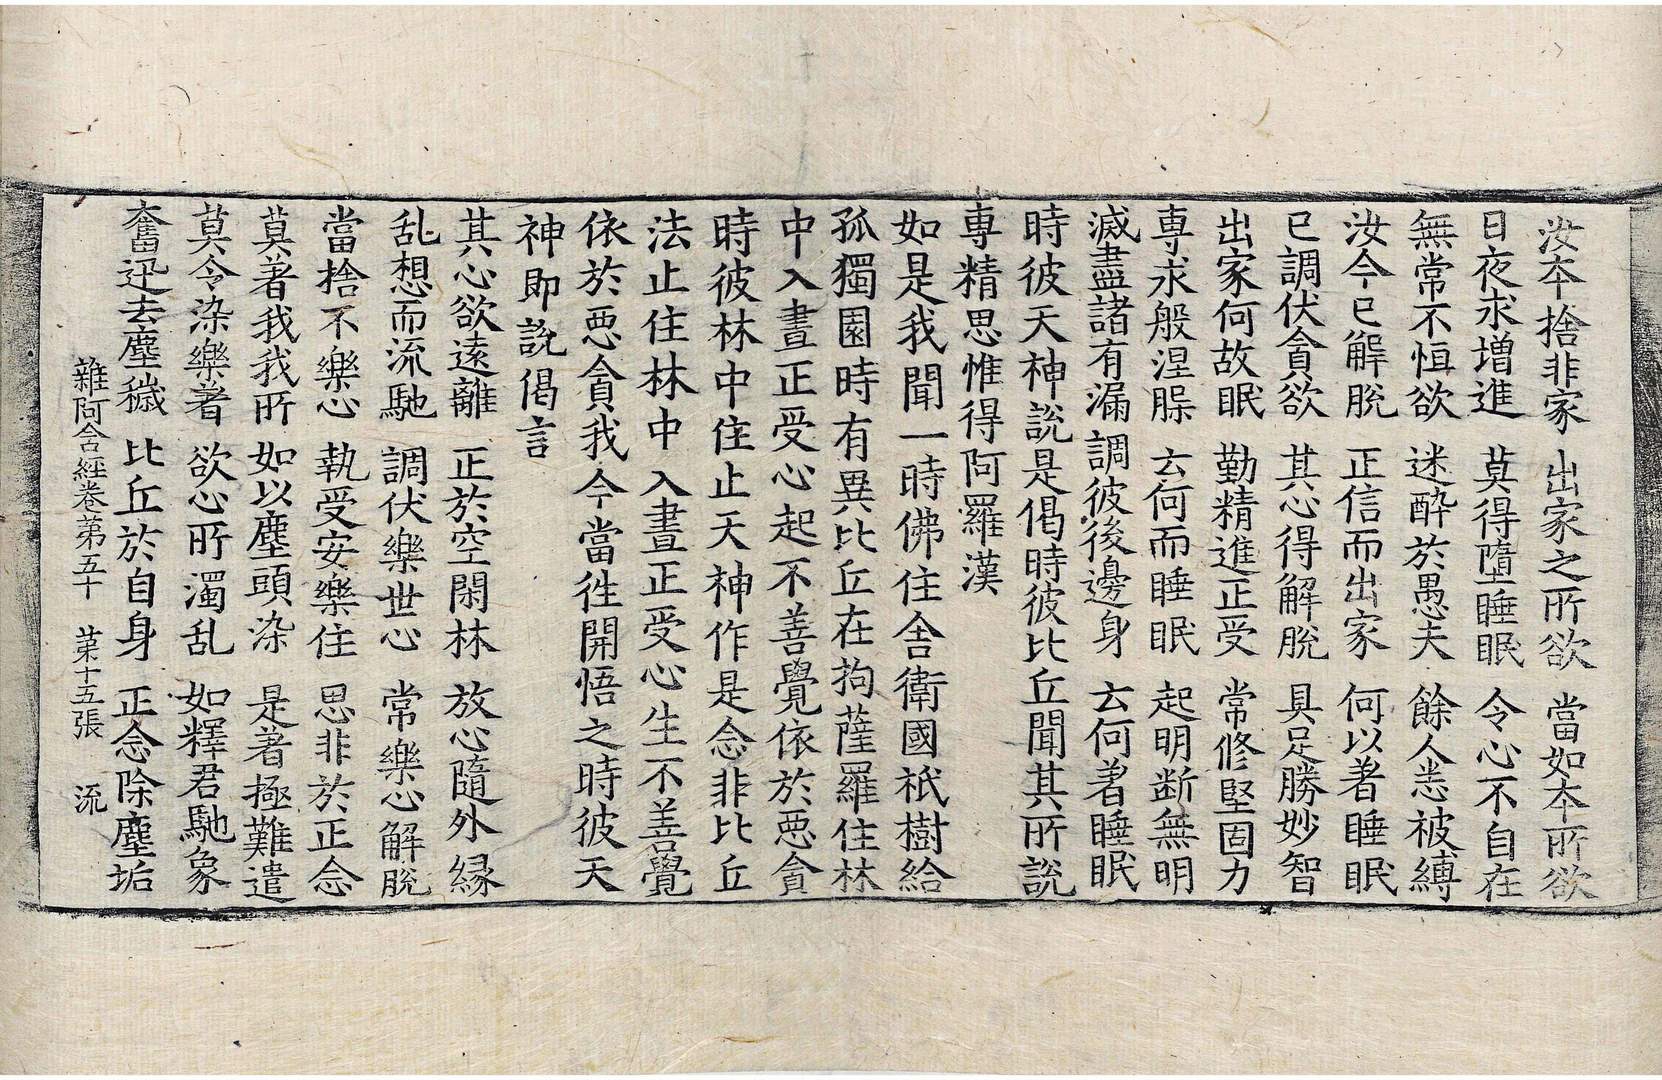 汝本捨非家　出家之所欲　當如本所欲
日夜求增進　莫得墮睡眠　令心不自在
無常不恒欲　迷醉於愚夫　餘人悉被縛
汝今已解脫　正信而出家　何以著睡眠
已調伏貪欲　其心得解脫　具足勝妙智
出家何故眠　勤精進正受　常修堅固力
專求般涅槃　云何而睡眠　起明断無明
滅盡諸有漏　調彼後邊身　云何著睡眠
時彼天神說是偈時彼比丘聞其所說
專精思惟得阿羅漢
如是我聞一時佛住舍衛國祇樹給
孤獨園時有異比丘在拘薩羅住林
中入晝正受心起不善覺依於惡貪
時彼林中住止天神作是念非比丘
法止住林中入晝正受心生不善覺
依於惡貪我今當往開悟之時彼天
神即說偈言
其心欲遠離　正於空閑林　放心隨外緣
乱想而流馳　調伏樂世心　常樂心解脫
當捨不樂心　執受安樂住　思非於正念
莫著我我所　如以塵頭染　是著極難遣
莫令染樂著　欲心所濁乱　如釋君馳象
奮迅去塵穢　比丘於自身　正念除塵垢
雜阿含經卷第五十　苐十五張　流